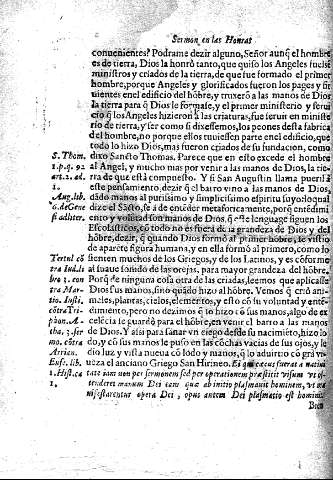 Sermon en las Honras
conuenientes? Podrame dezir alguno, Señor aunq̃ el hombre
es de tierra, Dios la honrò tanto, que quiso los Angeles fuessẽ
ministros y criados de la tierra, de que fue formado el primer
hombre, porque Angeles y glorificados fueron los pages y sir
uientes enel edificio del hõbre, y truxerõ a las manos de Dios
la tierra para q̃ Dios le formasse, y el primer ministerio y serui
cio q̃ los Angeles hizieron à las criaturas, fue seruir en ministe
rio de tierra, y ser como si dixessemos, los peones desta fabrica
del hombre, no porque ellos tuuiessen parte enel edificio, que
todo lo hizo Dios, mas fueron criados de su fundacion, como
dixo Sancto Thomas. Parece que en esto excede el hombre
al Angel, y mucho mas por venir a las manos de Dios, la tie-
rra de que està compuesto. Y si San Augustin llama pueril
este pensamiento, dezir q̃ el barro vino a las manos de Dios,
dado manos al purissimo y simplicissimo espiritu suyo: lo qual
dize el Sãcto, se à de encẽder metaforicamente, porq̃ entẽdimi
ento y voluntad son manos de Dios, q̃ este lenguage siguen los
Escolasticos, cõ todo no es fuera de la grandeza de Dios y del
hõbre, dezir, q̃ quando Dios formò al primer hõbre, se vistio
de aparẽte figura humana, y en ella formò al primero, como lo
sienten muchos de los Griegos, y de los Latinos, y es cõforme
al suaue sonido de las orejas, para mayor grandeza del hõbre.
Porq̃ de ninguna cosa otra de las criadas, leemos que aplicasse
Dios sus manos, sino quãdo hizo al hõbre. Vemos q̃ criò ani-
males, plantas, cielos, elementos, y esto cõ su voluntad y enten-
dimiento, pero no dezimos q̃ lo hizo cõ sus manos, algo de ex
celẽcia se guardò para el hõbre, en venir el barro a las manos
de Dios. Y assi para sanar vn ciego desde su nacimiẽto, hizo lo
do, y cõ sus manos le puso en las cõchas vacias de sus ojos, y le
dio luz y vista nueua cõ lodo y manos, q̃ lo aduirtio cõ grã vi-
ueza el anciano Griego San Hirineo. Ei qui cæcus fuerat a natiui
tate iam non per sermonem sed per operationem præstitit visum vt os-
tenderet manum Dei eam quæ ab initio plasmauit hominem, vt ma
nifestarentur opera Dei, opus autem Dei plasmatio est hominis
Bien
S. Thom.
1. p. q. 91
ar. 2. ad.
1.
Aug. lib.
de Gene
si ad liter.
Tertul cõ
tra Iud. li
bro
Mar-
tio. Iusti.
cõtra Tri
põ.
Atha.
cõtra
Arrian.
Euse. lib.
1. Hist. ca
1.